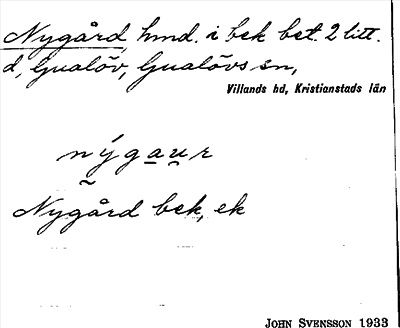 Nygård, hmd. i bek bet. 2 litt.
d, Gualöv, Gualövs sn,
Villands hd, Kristianstads län
nýga̲u̯r
Nygård bek, ek
JOHN SVENSSON 1933